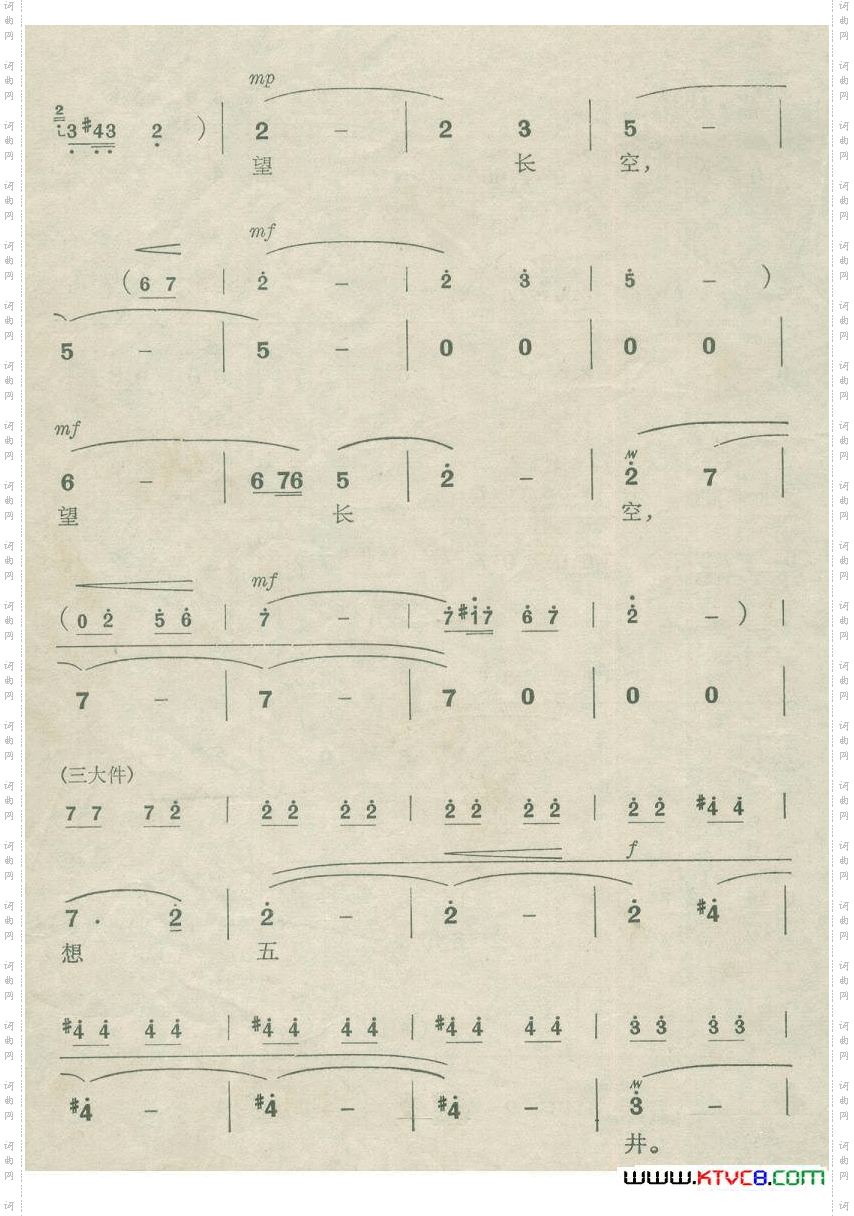 mp
2 3 #4 3 2 ) | 2 – | 2 3 | 5 – |
望 长 空，
mf
( 6 7 | 2 – | 2 3 | 5 – )
5 – | 5 – | 0 0 | 0 0 |
mf
6 – | 6 76 5 | 2 – | 2 7 |
望 长 空，
mf
( 0 2 5 6 | 7 – | 7 #1 7 6 7 | 2 – ) |
7 – | 7 – | 7 0 | 0 0 |
(三大件)
7 7 7 2 | 2 2 2 2 | 2 2 2 2 | 2 2 #4 4 |
f
7 · 2 | 2 – | 2 – | 2 #4 |
想 五
#4 4 4 4 | #4 4 4 4 | #4 4 4 4 | 3 3 3 3 |
#4 – | #4 – | #4 – | 3 – |
井。
WWW.KTVC8.COM